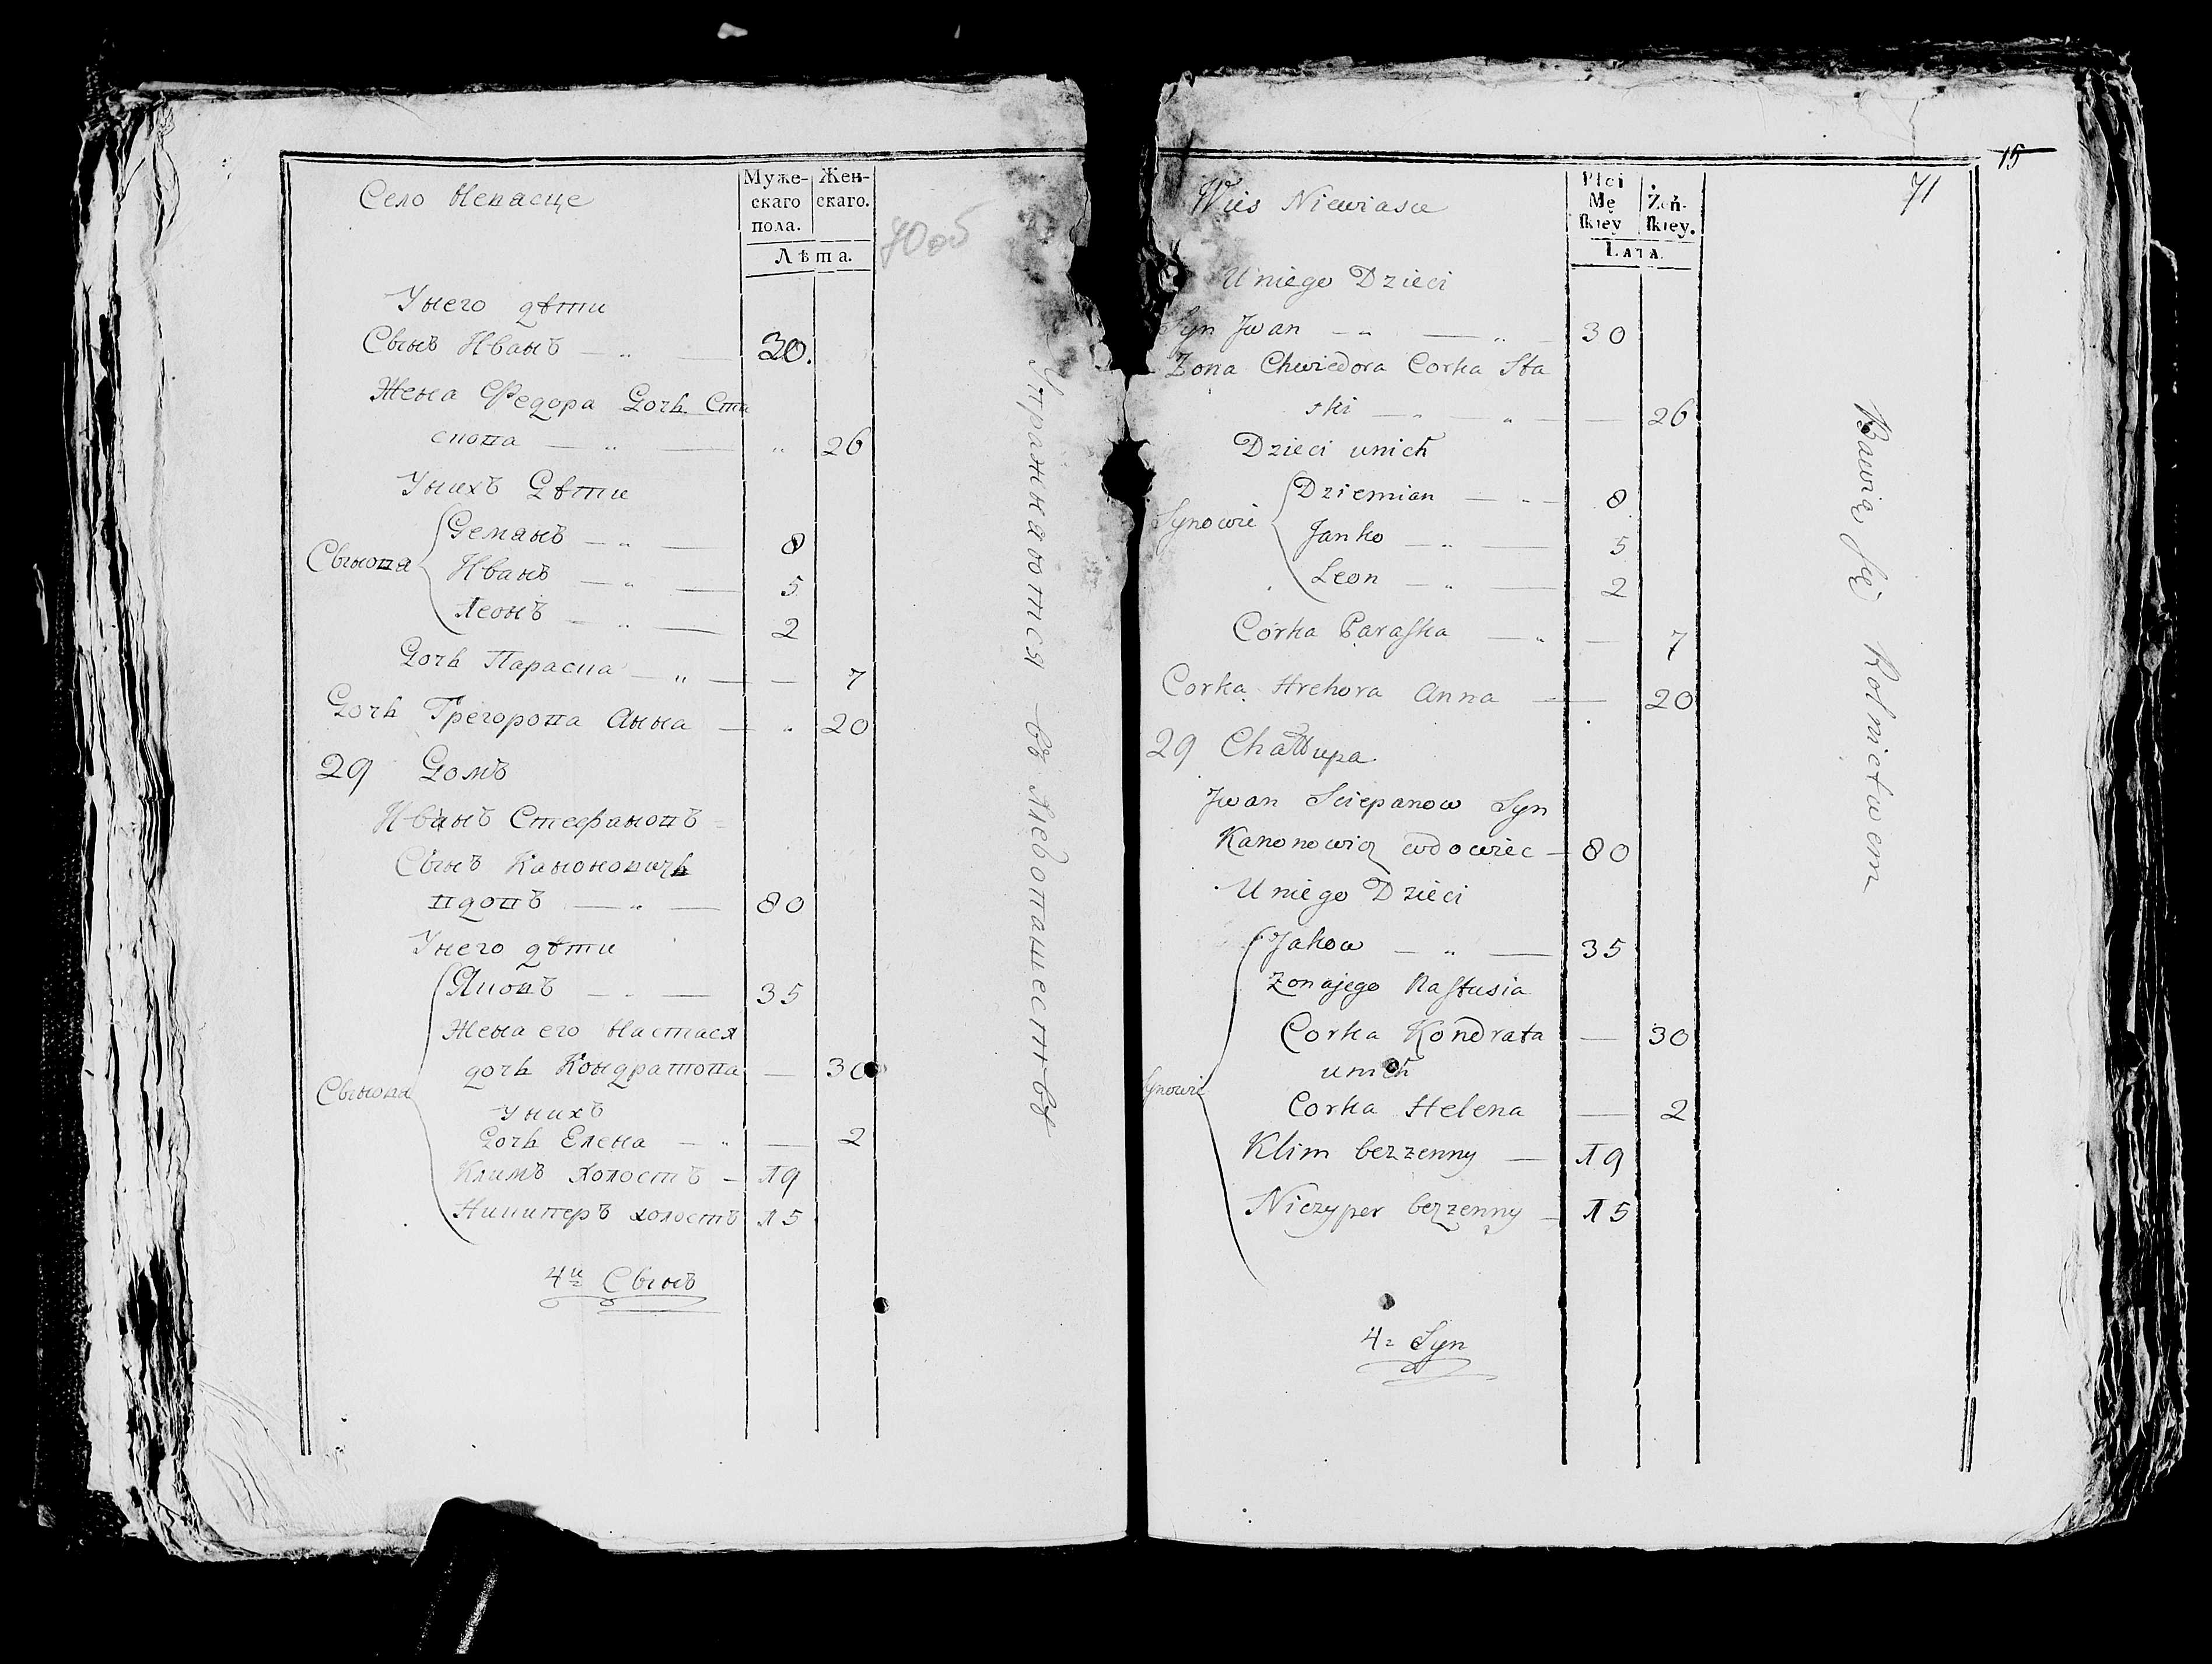 Село Невасце
Муже-
скаго
пола.
Жен-
скаго.
Лѣта.
70об
Унего дѣти
Сынъ Иванъ — „ — 30.
Жена Федора Дочь Ста
скова — „ — „ 26
Унихъ Дѣти
Сынова
Деманъ — „ — 8
Иванъ — „ — 5
Леонъ — „ — 2
Дочь Параска — „ — — 7
Дочь Грегорова Анна — „ 20
29 Домъ
Иванъ Стефановъ
Сынъ Канонович
вдовъ — „ — 80
Унего дѣти
Сынова
Яковъ — „ — 35
Жена его Настася
дочь Кондратова — 30
Унихъ
Дочь Елена — „ — 2
Климъ холостъ — 19
Ничиперъ холостъ 15
4й Сынъ
Упражнаются въ хлебопашествѣ
15
71
Wies Niewiasce
Płci
Mę
ſkiey
Żeń-
ſkiey.
Lata.
Uniego Dzieci
Syn Jwan — „ — „ — 30
Zona Chwiedora Corka Sta
ski — „ — „ — — 26
Dzieci unich
Synowie
Dziemian — „ — 8
Janko — „ — 5
Leon — „ — 2
Corka Paraſka — „ — 7
Corka Hrehora Anna — 20
29 Chałłupa
Jwan Sciepanow Syn
Kanonowicz wdowiec — 80
Uniego Dzieci
Synowie
Jakow — „ — 35
Zonajego Naſtusia
Corka Kondrata — 30
unich
Corka Helena — 2
Klim bezzenny — 19
Niczyper bezzenny — 15
4= Syn
Bawią ſię Rolnictwem